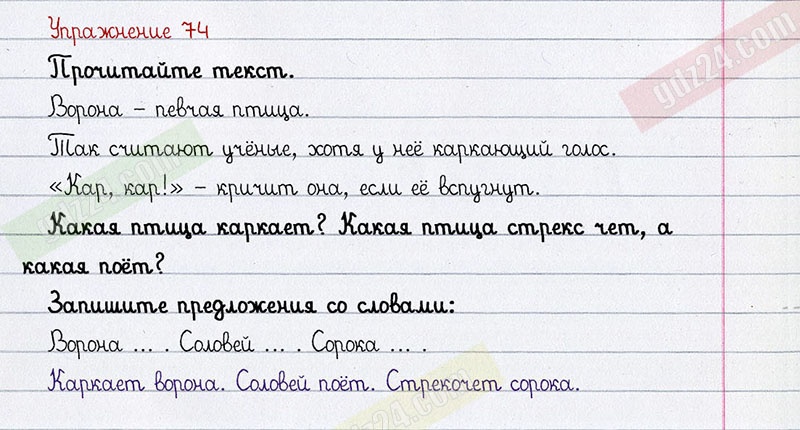 Упражнение 74
Прочитайте текст.
Ворона – певчая птица.
Так считают учёные, хотя у неё каркающий голос.
«Кар, кар!» – кричит она, если её вспугнут.
Какая птица каркает? Какая птица стрекс чет, а
какая поёт?
Запишите предложения со словами:
Ворона ... . Соловей ... . Сорока ... .
Каркает ворона. Соловей поёт. Стрекочет сорока.
gdz24.com
gdz24.com
dz24.com